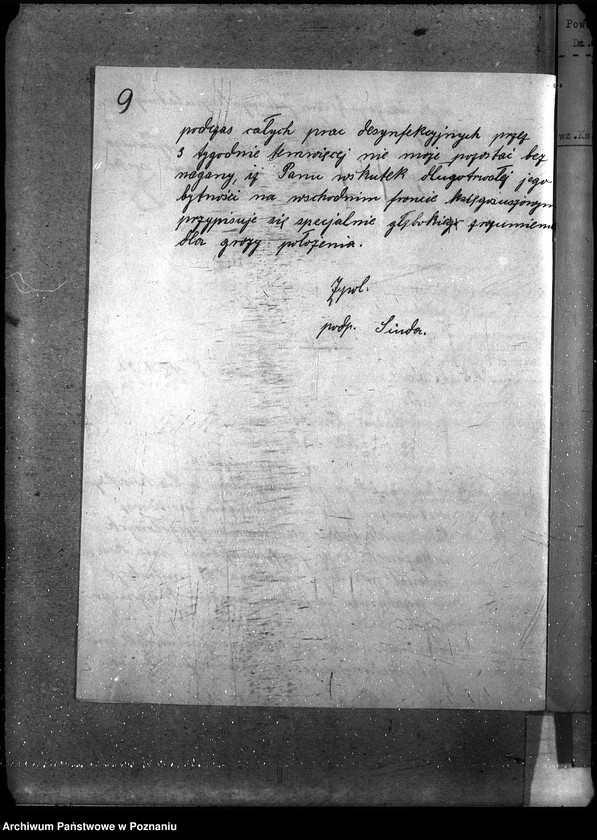 9
podczas całych prac desynfekcyjnych przez
3 tygodnie temwięcej nie może pozostać bez
nagany, iż Panu wskutek długotrwałej jego
bytności na wschodnim froncie księgosuszowym
przypisuje się specjalnie głębokie zrozumienie
dla grozy położenia.
podp. Sinda.
Pow
wz. Ks
Archiwum Państwowe w Poznaniu